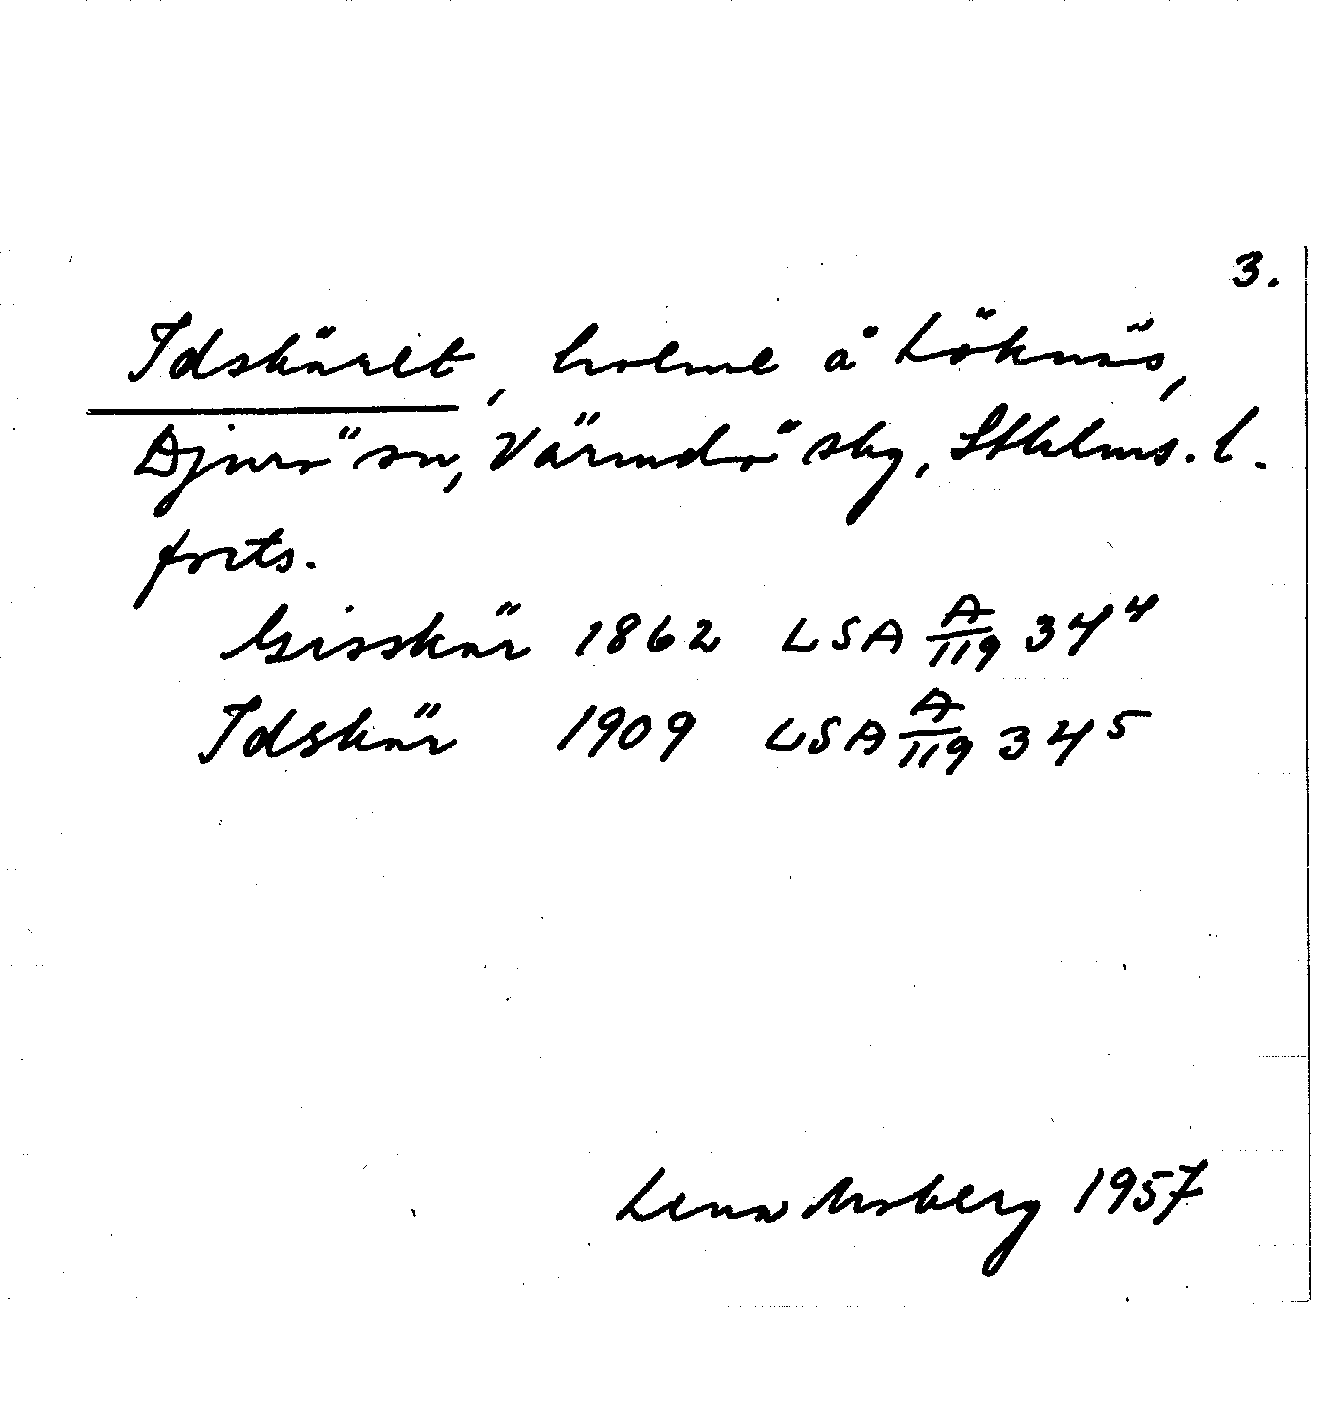 3.
Idskäret, holme å Löknäs,
Djurö sn, Värmdö skg, Sthlms. l.
forts.
Gisskär 1862 LSA A/119 34⁴
Idskär 1909 LSA A/119 34⁵
Lena Moberg 1957